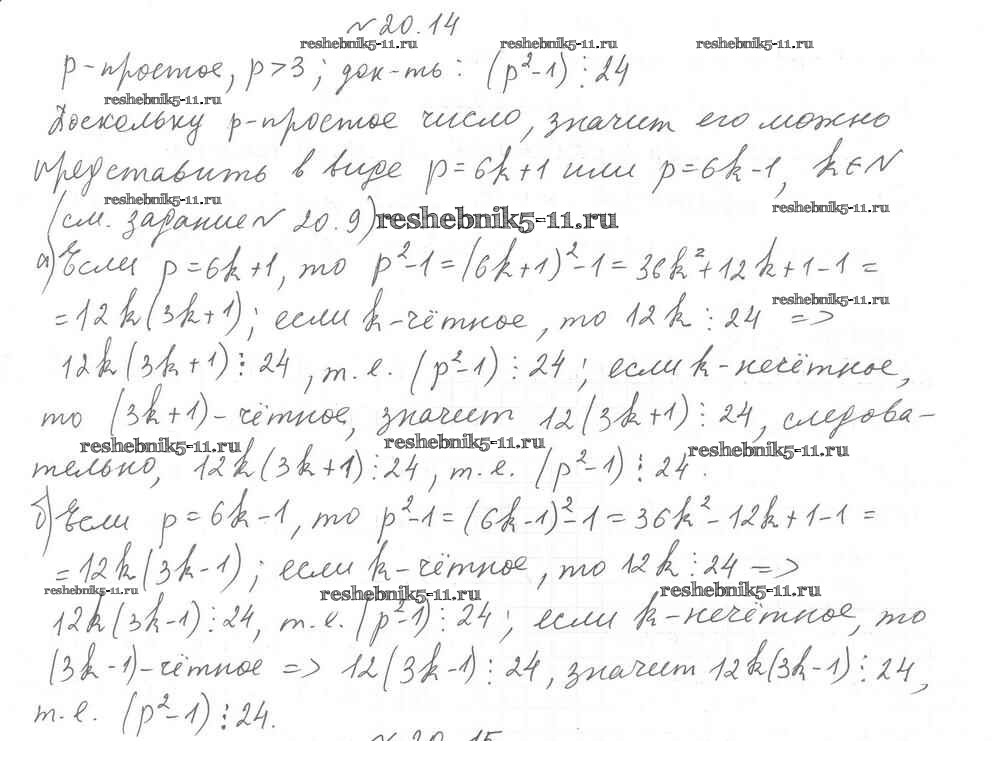 №20.14
reshebnik5-11.ru reshebnik5-11.ru reshebnik5-11.ru
p-простое, p>3; док-ть: (p²-1)⋮24
reshebnik5-11.ru
Поскольку p-простое число, значит его можно
представить в виде p=6k+1 или p=6k-1, k∈N
reshebnik5-11.ru reshebnik5-11.ru
(см. задание № 20.9) reshebnik5-11.ru
а) Если p=6k+1, то p²-1=(6k+1)²-1=36k²+12k+1-1=
reshebnik5-11.ru
=12k(3k+1); если k-чётное, то 12k⋮24 =>
12k(3k+1)⋮24, т.е. (p²-1)⋮24; если k-нечётное,
то (3k+1)-чётное, значит 12(3k+1)⋮24, следова-
reshebnik5-11.ru reshebnik5-11.ru reshebnik5-11.ru
тельно, 12k(3k+1)⋮24, т.е. (p²-1)⋮24.
б) Если p=6k-1, то p²-1=(6k-1)²-1=36k²-12k+1-1=
=12k(3k-1); если k-чётное, то 12k⋮24 =>
reshebnik5-11.ru reshebnik5-11.ru reshebnik5-11.ru
12k(3k-1)⋮24, т.е. (p²-1)⋮24; если k-нечётное, то
(3k-1)-чётное => 12(3k-1)⋮24, значит 12k(3k-1)⋮24,
т.е. (p²-1)⋮24.
№20.15